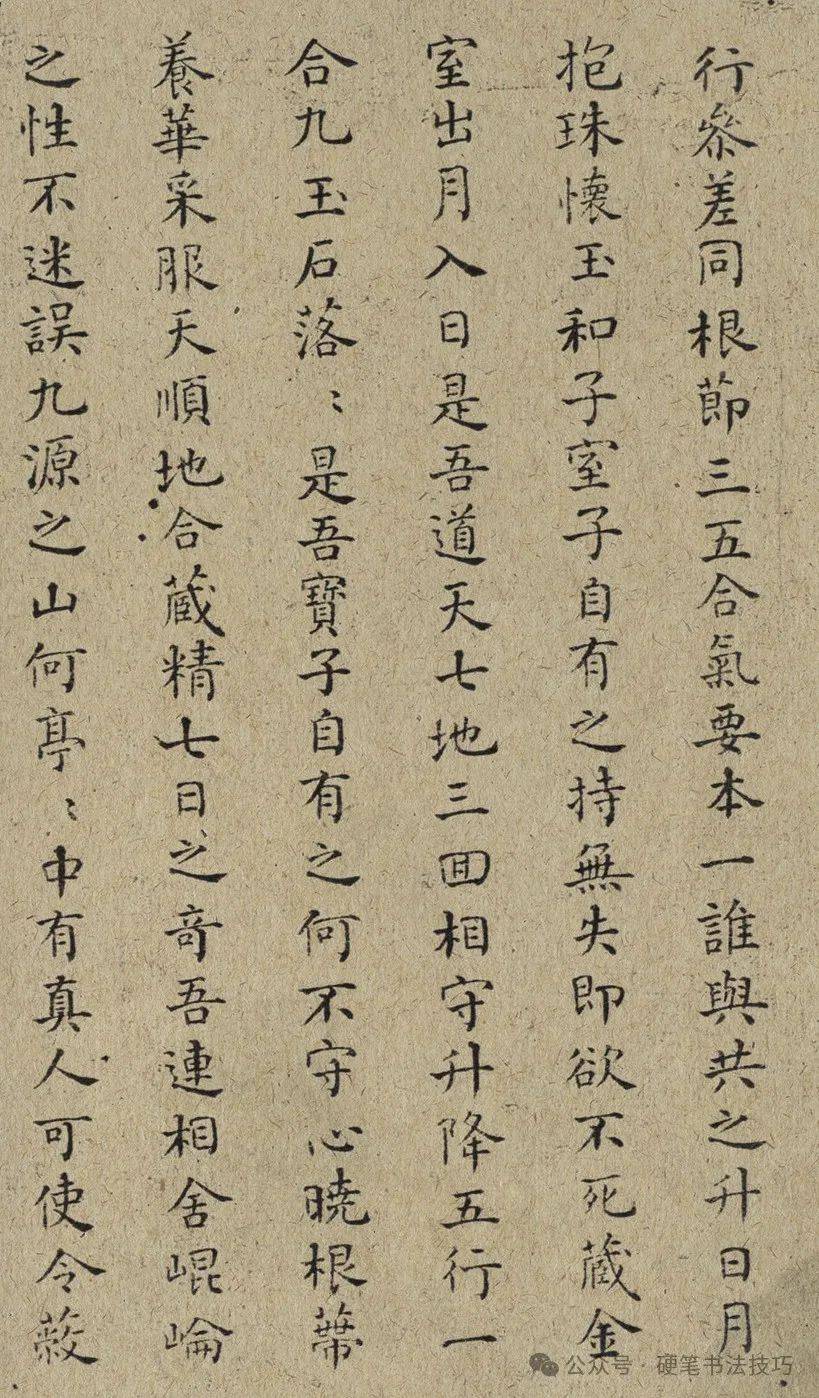 行參差同根節三五合氣要本一誰與共之升日月
抱珠懷玉和子室子自有之持無失即欲不死藏金
室出月入日是吾道天七地三回相守升降五行一
合九玉石落〻是吾寶子自有之何不守心曉根蔕
養華采服天順地合藏精七日之奇吾連相舍崐崘
之性不迷誤九源之山何亭〻中有真人可使令蔽
公众号·硬笔书法技巧